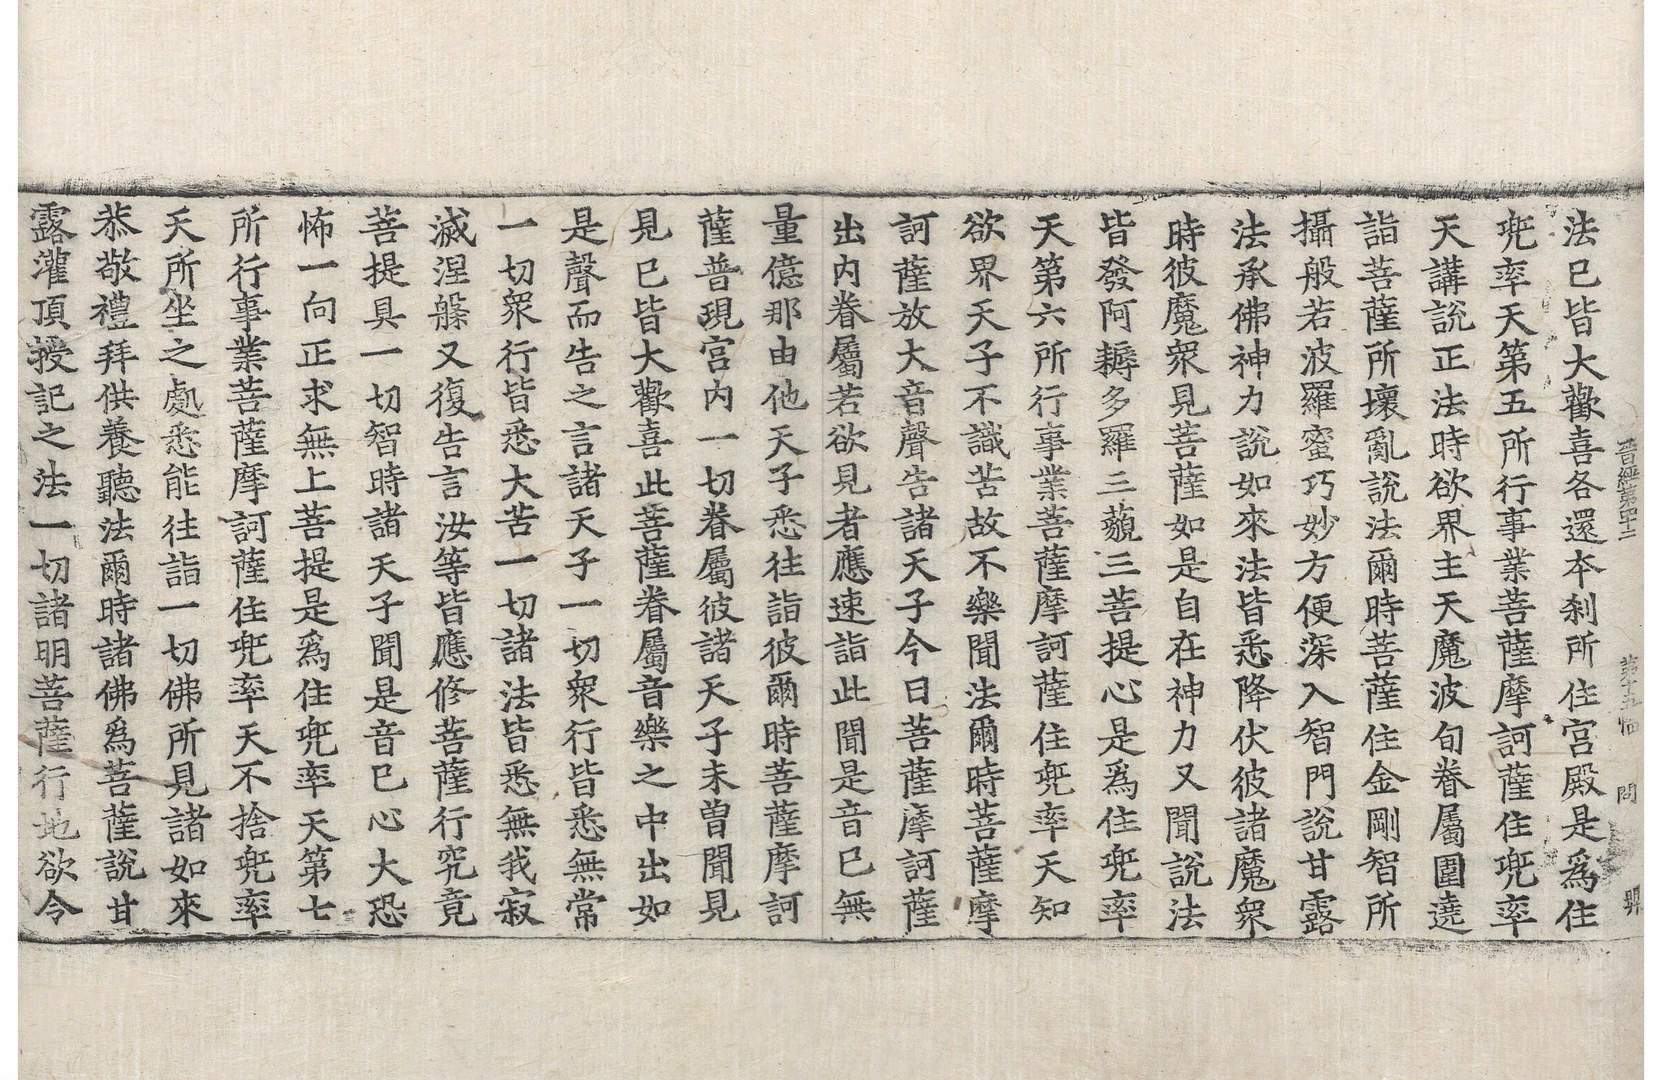 晉經第四十三　第十五幅　問　鼎
法已皆大歡喜各還本刹所住宮殿是爲住
兜率天第五所行事業菩薩摩訶薩住兜率
天講說正法時欲界主天魔波旬眷屬圍遶
詣菩薩所壞亂說法爾時菩薩住金剛智所
攝般若波羅蜜巧妙方便深入智門說甘露
法承佛神力說如來法皆悉降伏彼諸魔衆
時彼魔衆見菩薩如是自在神力又聞說法
皆發阿耨多羅三藐三菩提心是爲住兜率
天第六所行事業菩薩摩訶薩住兜率天知
欲界天子不識苦故不樂聞法爾時菩薩摩
訶薩放大音聲告諸天子今日菩薩摩訶薩
出內眷屬若欲見者應速詣此聞是音已無
量億那由他天子悉往詣彼爾時菩薩摩訶
薩普現宮內一切眷屬彼諸天子未曾聞見
見已皆大歡喜此菩薩眷屬音樂之中出如
是聲而告之言諸天子一切衆行皆悉無常
一切衆行皆悉大苦一切諸法皆悉無我寂
滅涅槃又復告言汝等皆應修菩薩行究竟
菩提具一切智時諸天子聞是音已心大恐
怖一向正求無上菩提是爲住兜率天第七
所行事業菩薩摩訶薩住兜率天不捨兜率
天所坐之處悉能往詣一切佛所見諸如來
恭敬禮拜供養聽法爾時諸佛爲菩薩說甘
露灌頂授記之法一切諸明菩薩行地欲令